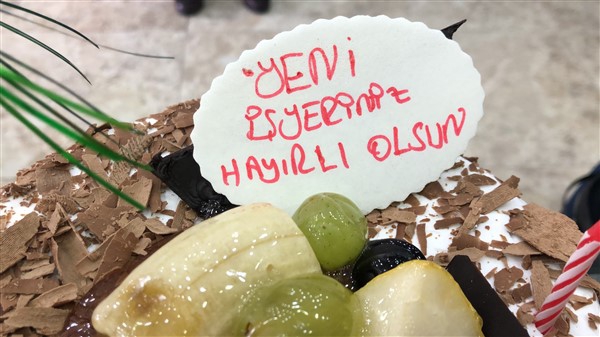 YENİ
İŞYERİNİZ
HAYIRLI OLSUN